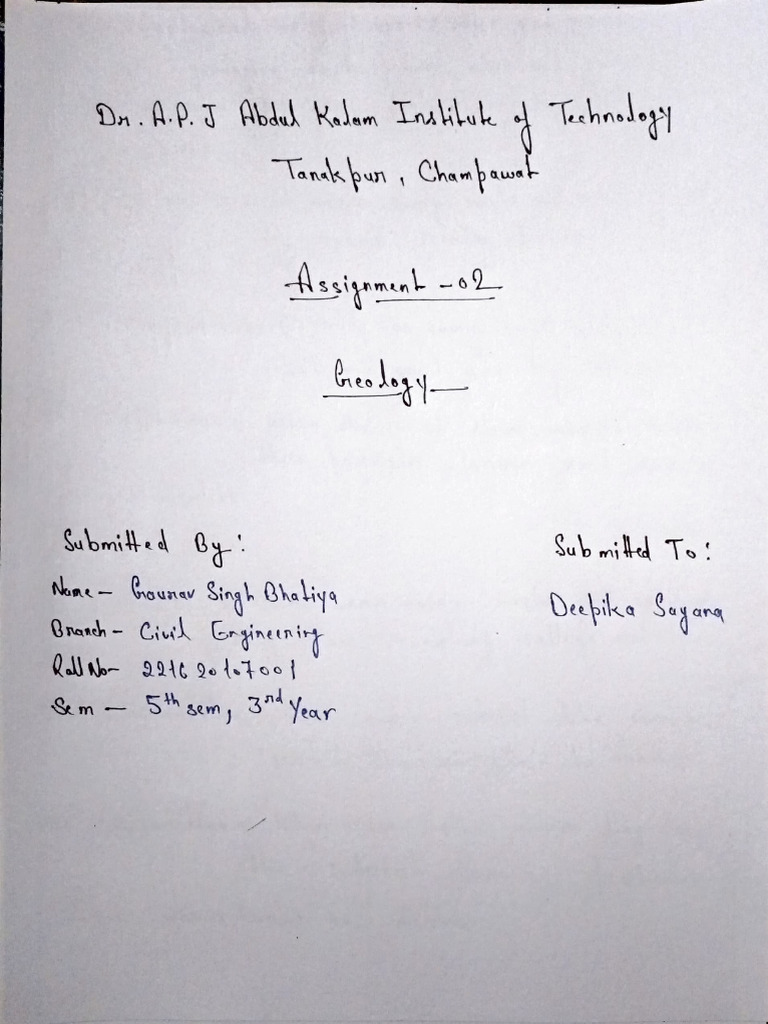 Dr. A.P.J Abdul Kalam Institute of Technology
Tanakpur, Champawat
Assignment -02
Geology
Submitted By:
Name - Gourav Singh Bhatiya
Branch - Civil Engineering
Roll No- 221620107001
Sem - 5th sem, 3rd Year
Submitted To:
Deepika Sayana